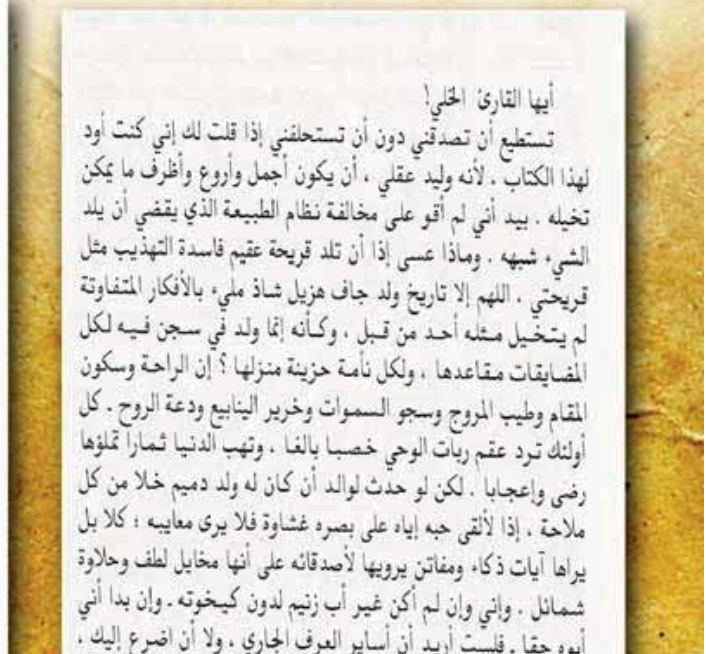 أيها القارئ الخلي!
تستطيع أن تصدقني دون أن تستحلفني إذا قلت لك إني كنت أود
لهذا الكتاب ، لأنه وليد عقلي ، أن يكون أجمل وأروع وأظرف ما يمكن
تخيله . بيد أني لم أقو على مخالفة نظام الطبيعة الذي يقضي أن يلد
الشيء شبهه . وماذا عسى إذا أن تلد قريحة عقيم فاسدة التهذيب مثل
قريحتي ، اللهم إلا تاريخ ولد جاف هزيل شاذ مليء بالأفكار المتفاوتة
لم يتخيل مثله أحد من قبل ، وكأنه إنما ولد في سجن فيه لكل
المضايقات مقاعدها ، ولكل نأمة حزينة منزلها ؟ إن الراحة وسكون
المقام وطيب المروج وسجو السموات وخرير الينابيع ودعة الروح . كل
أولئك ترد عقم ربات الوحي خصبا بالغا ، وتهب الدنيا ثمارا تملؤها
رضى وإعجابا . لكن لو حدث لوالد أن كان له ولد دميم خلا من كل
ملاحة ، إذا لألقى حبه إياه على بصره غشاوة فلا يرى معايبه ؛ كلا بل
يراها آيات ذكاء ومفاتن يرويها لأصدقائه على أنها مخايل لطف وحلاوة
شمائل . وإني وإن لم أكن غير أب زنيم لدون كيخوته . وإن بدا أني
أبوه حقا ، فلست أريد أن أساير العرف الجاري ، ولا أن اضرع إليك ،